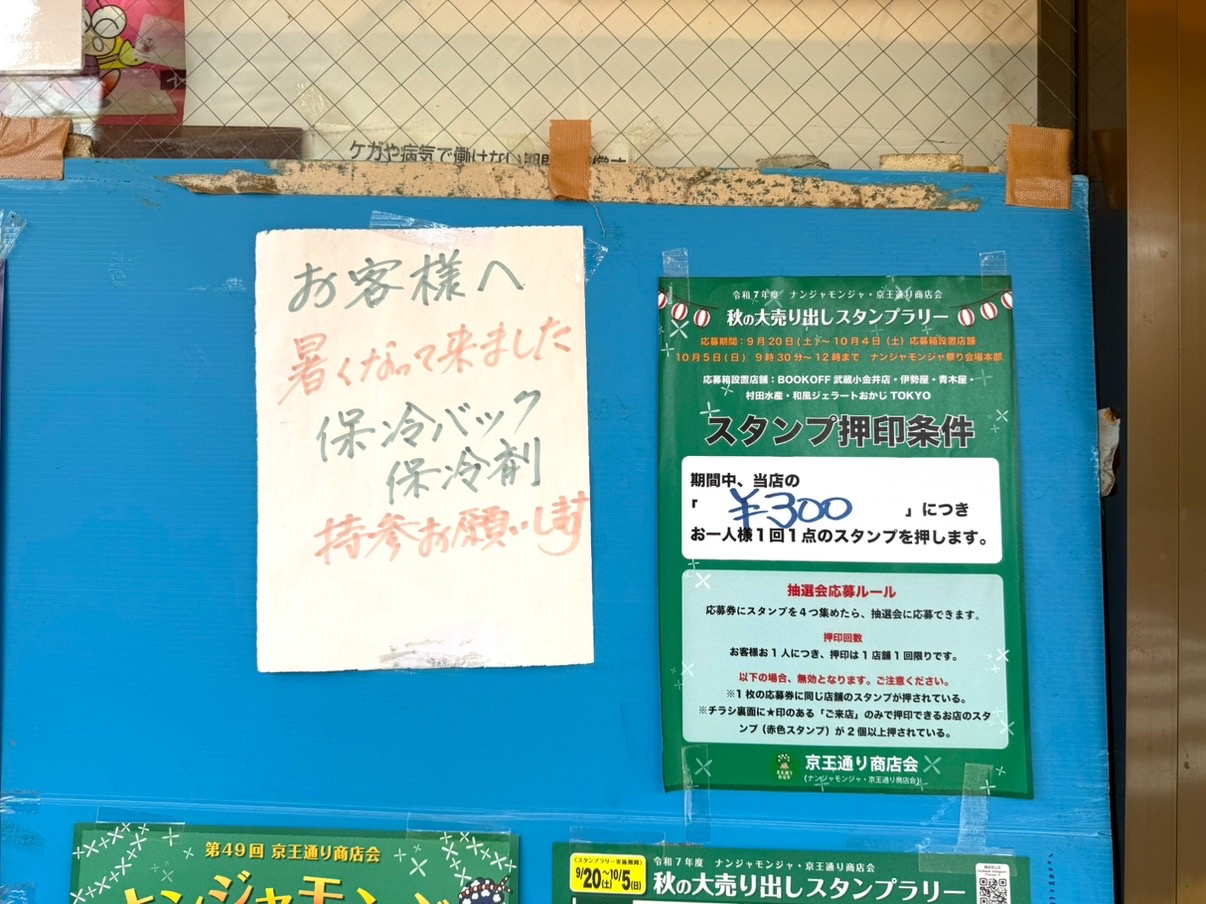 ケガや病気で働けない期間
お客様へ
暑くなって来ました
保冷バック
保冷剤
持参お願いします
令和7年度 ナンジャモンジャ・京王通り商店会
秋の大売り出しスタンプラリー
応募期間：9月20日(土)～10月4日(土) 応募箱設置店舗
10月5日(日) 9時30分～12時まで ナンジャモンジャ祭り会場本部
応募箱設置店舗：BOOKOFF 武蔵小金井店・伊勢屋・青木屋・
村田水産・和風ジェラートおかじ TOKYO
スタンプ押印条件
期間中、当店の
「 ¥300 」につき
お一人様1回1点のスタンプを押します。
抽選会応募ルール
応募券にスタンプを4つ集めたら、抽選会に応募できます。
押印回数
お客様お1人につき、押印は1店舗1回限りです。
以下の場合、無効となります。ご注意ください。
※1枚の応募券に同じ店舗のスタンプが押されている。
※チラシ裏面に★印のある「ご来店」のみで押印できるお店のスタ
ンプ（赤色スタンプ）が2個以上押されている。
京王通り商店会
(ナンジャモンジャ・京王通り商店会)
第49回 京王通り商店会
ナンジャモンジ
〈スタンプラリー実施期間〉
9/20(土)～10/5(日)
令和7年度 ナンジャモンジャ・京王通り商店会
秋の大売り出しスタンプラリー